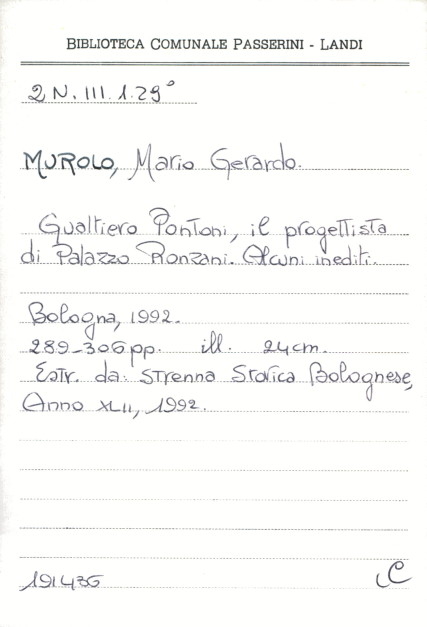 BIBLIOTECA COMUNALE PASSERINI - LANDI
2 N. III. 1. 29°
MUROLO, Mario Gerardo.
Gualtiero Pontoni, il progettista
di Palazzo Ronzani. Alcuni inediti.
Bologna, 1992.
289-306 pp. ill. 24 cm.
Estr. da: Strenna Storica Bolognese,
Anno XLII, 1992.
191436
C